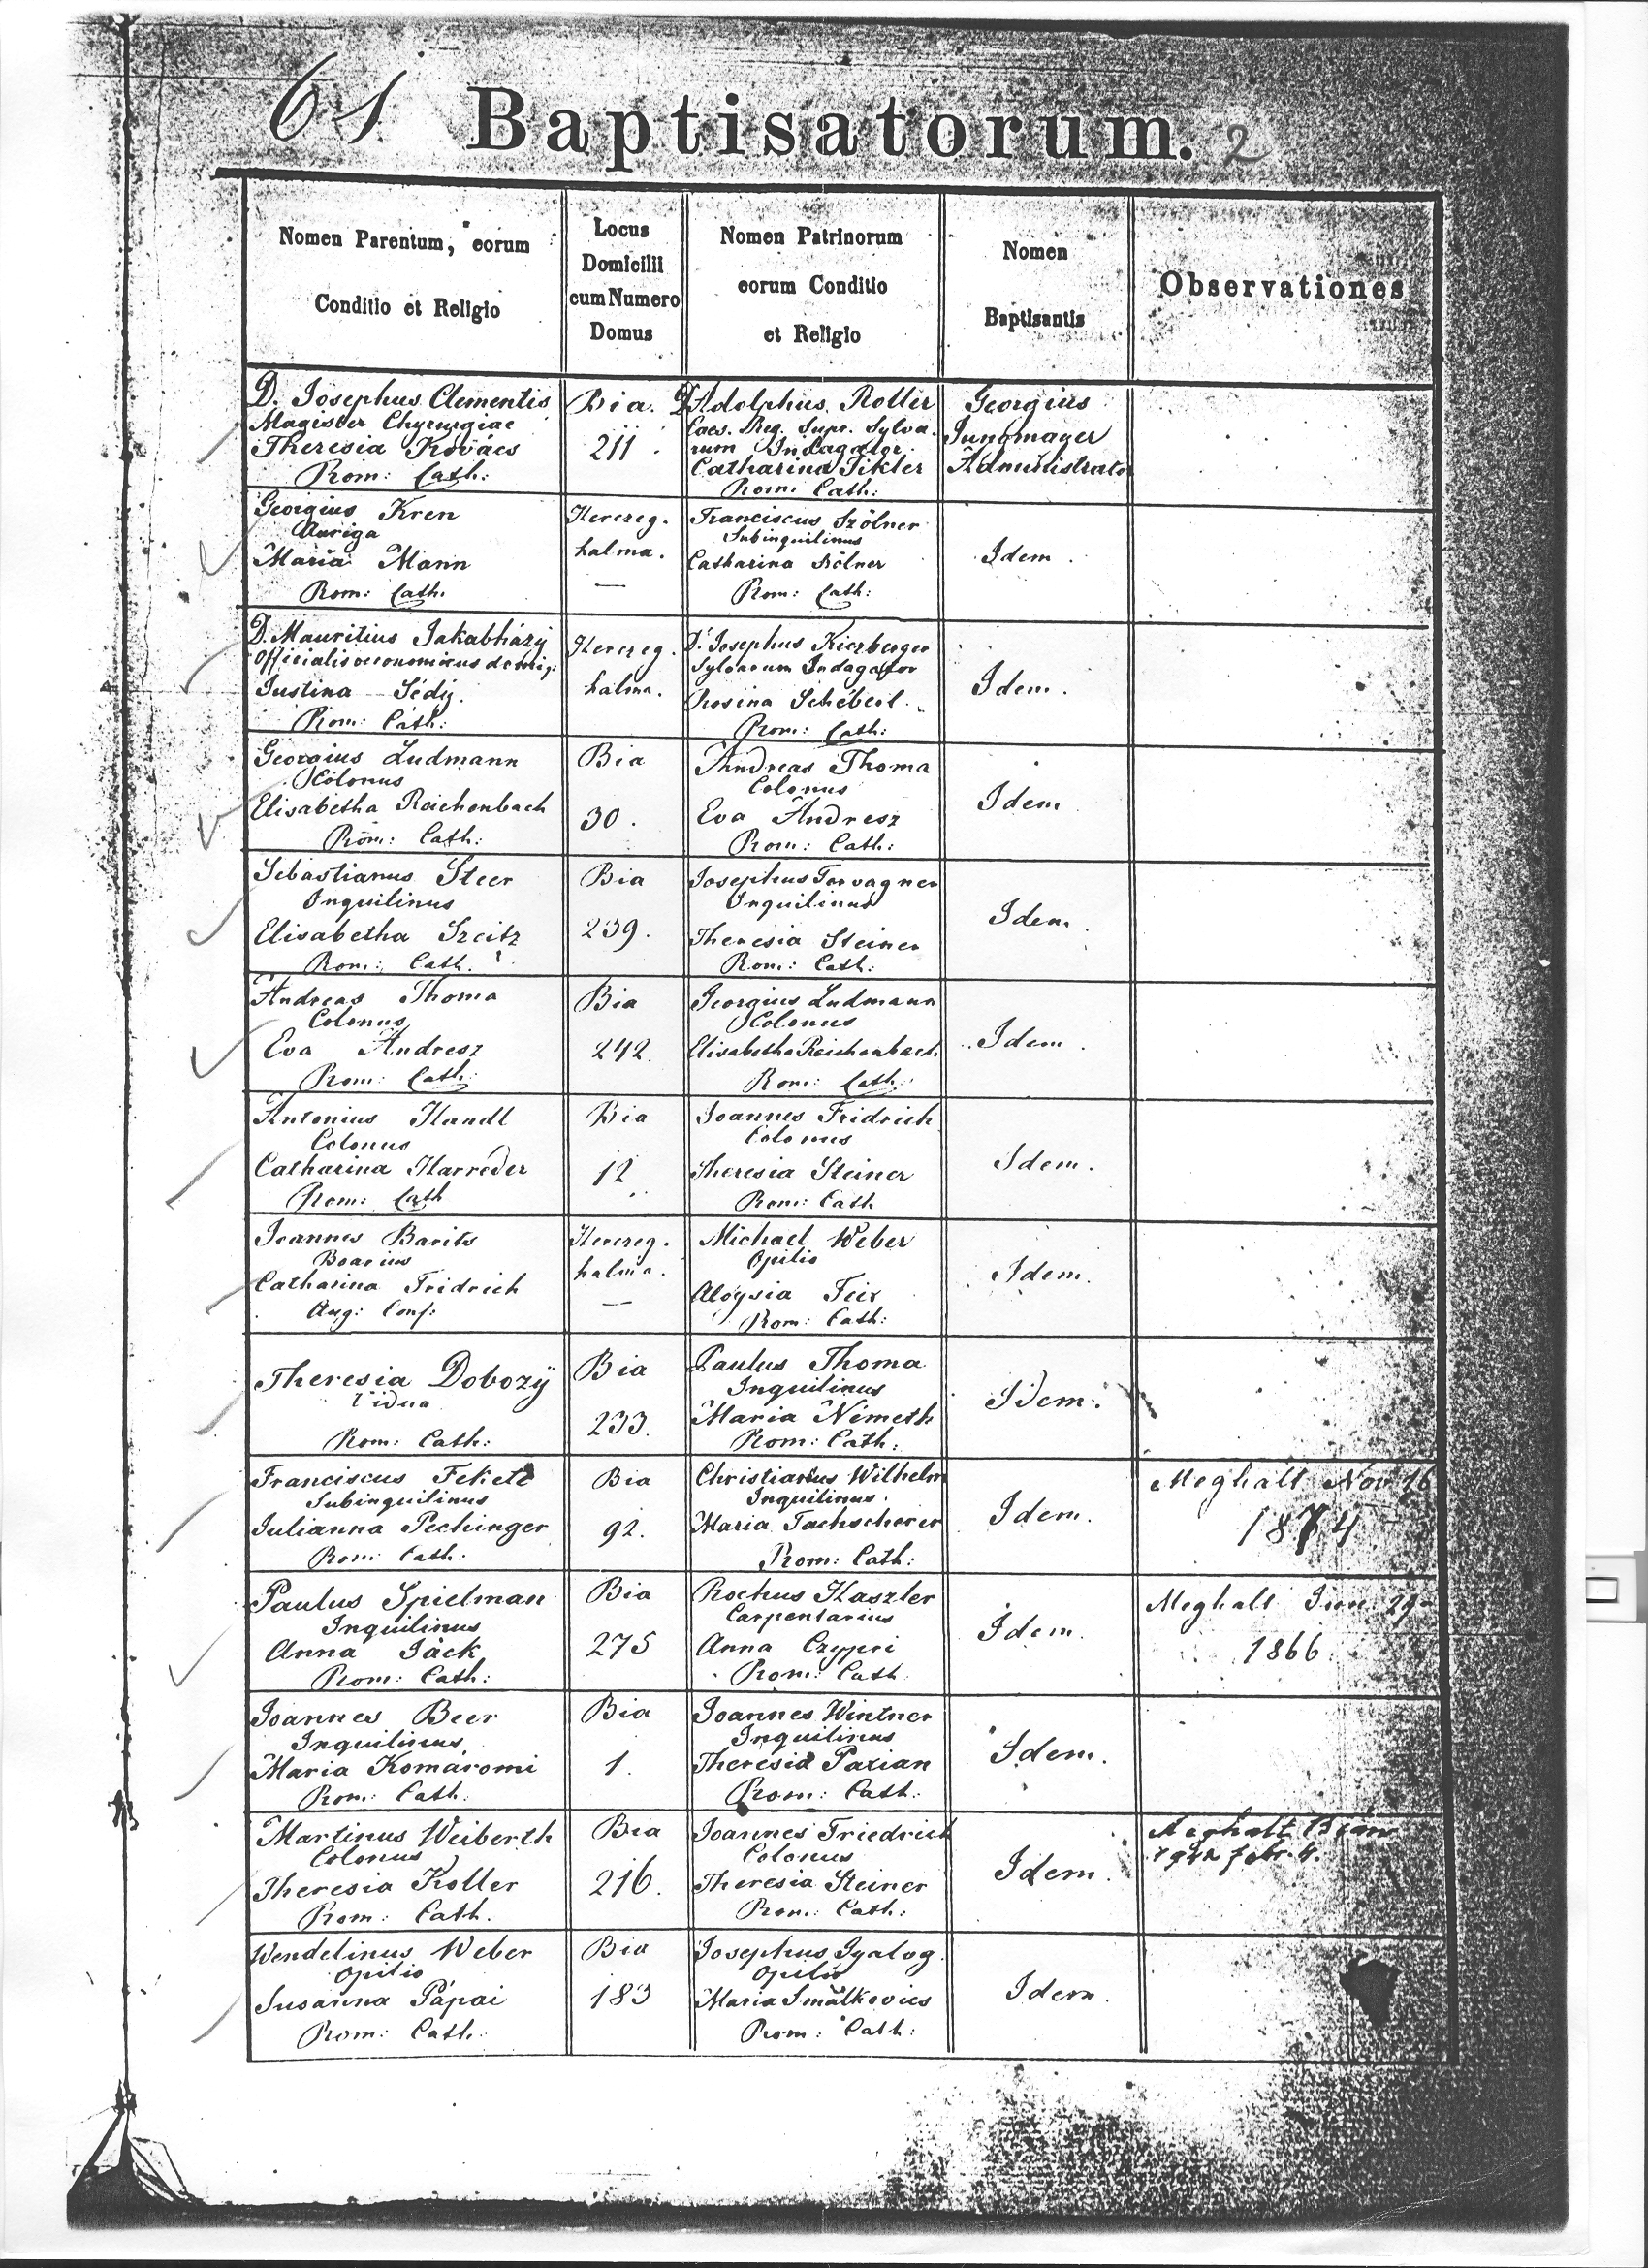 61 Baptisatorum. 2
Nomen Parentum, eorum
Conditio et Religio
Locus
Domicilii
cum Numero
Domus
Nomen Patrinorum
eorum Conditio
et Religio
Nomen
Baptisantis
Observationes
D. Josephus Clementis
Magister Chyrurgiae
Theresia Kovács
Rom: Cath:
Bia.
211
D. Adolphus Roller
Caes. Reg. Supr. Sylva-
rum Indagator
Catharina Tikler
Rom: Cath:
Georgius
Jungmayer
Administrator
Georgius Kren
Auriga
Maria Mann
Rom: Cath.
Herczeg.
halma.
—
Franciscus Szölner
Subinquilinus
Catharina
Rom: Cath:
Idem.
D. Mauritius Jakabházy
Officialis oeconomicus
Justina
Rom: Cath:
Herczeg.
halma.
D. Josephus Kierberger
Sylvarum Indagator
Rosina
Rom: Cath:
Idem.
Georgius Ludmann
Colonus
Elisabetha Reichenbach
Rom: Cath:
Bia
30.
Andreas Thoma
Colonus
Eva Andresz
Rom: Cath:
Idem
Sebastianus Steer
Inquilinus
Elisabetha Szeitz
Rom: Cath.
Bia
239.
Josephus Torvagner
Inquilinus
Theresia Steiner
Rom: Cath:
Idem.
Andreas Thoma
Colonus
Eva Andresz
Rom: Cath:
Bia
242.
Georgius Ludmann
Colonus
Elisabetha Reichenbach
Rom: Cath:
Idem.
Antonius Handl
Colonus
Catharina Harréder
Rom: Cath
Bia
12
Joannes Fridrich
Colonus
Theresia Steiner
Rom: Cath
Idem.
Joannes Barits
Boarius
Catharina Fridrich
Aug: Conf:
Herczeg.
halma.
—
Michael Weber
Opilio
Aloysia Feix
Rom: Cath:
Idem.
Theresia Dobozy
Vidua
Rom: Cath:
Bia
233.
Paulus Thoma
Inquilinus
Maria Németh
Rom: Cath:
Idem.
Franciscus Fekete
Subinquilinus
Julianna Pechinger
Rom: Cath:
Bia
92.
Christianus Wilhelm
Inquilinus
Maria Tachscherer
Rom: Cath:
Idem.
Meghalt Nov 16
1874
Paulus Spielman
Inquilinus
Anna Jäck
Rom: Cath:
Bia
275
Rochus Haszler
Carpentarius
Anna Czyperi
Rom: Cath
Idem.
Meghalt Jun. 29
1866
Joannes Beer
Inquilinus
Maria Komáromi
Rom: Cath.
Bia
1.
Joannes Wintner
Inquilinus
Theresia Paxian
Rom: Cath:
Idem.
Martinus Weiberth
Colonus
Theresia Koller
Rom: Cath.
Bia
216.
Joannes Friedrich
Colonus
Theresia Steiner
Rom: Cath:
Idem.
Meghalt Bián
febr. 4.
Wendelinus Weber
Opilio
Susanna Pápai
Rom: Cath:
Bia
183
Josephus Gyalog
Opilio
Maria Smalkovics
Rom: Cath:
Idem.